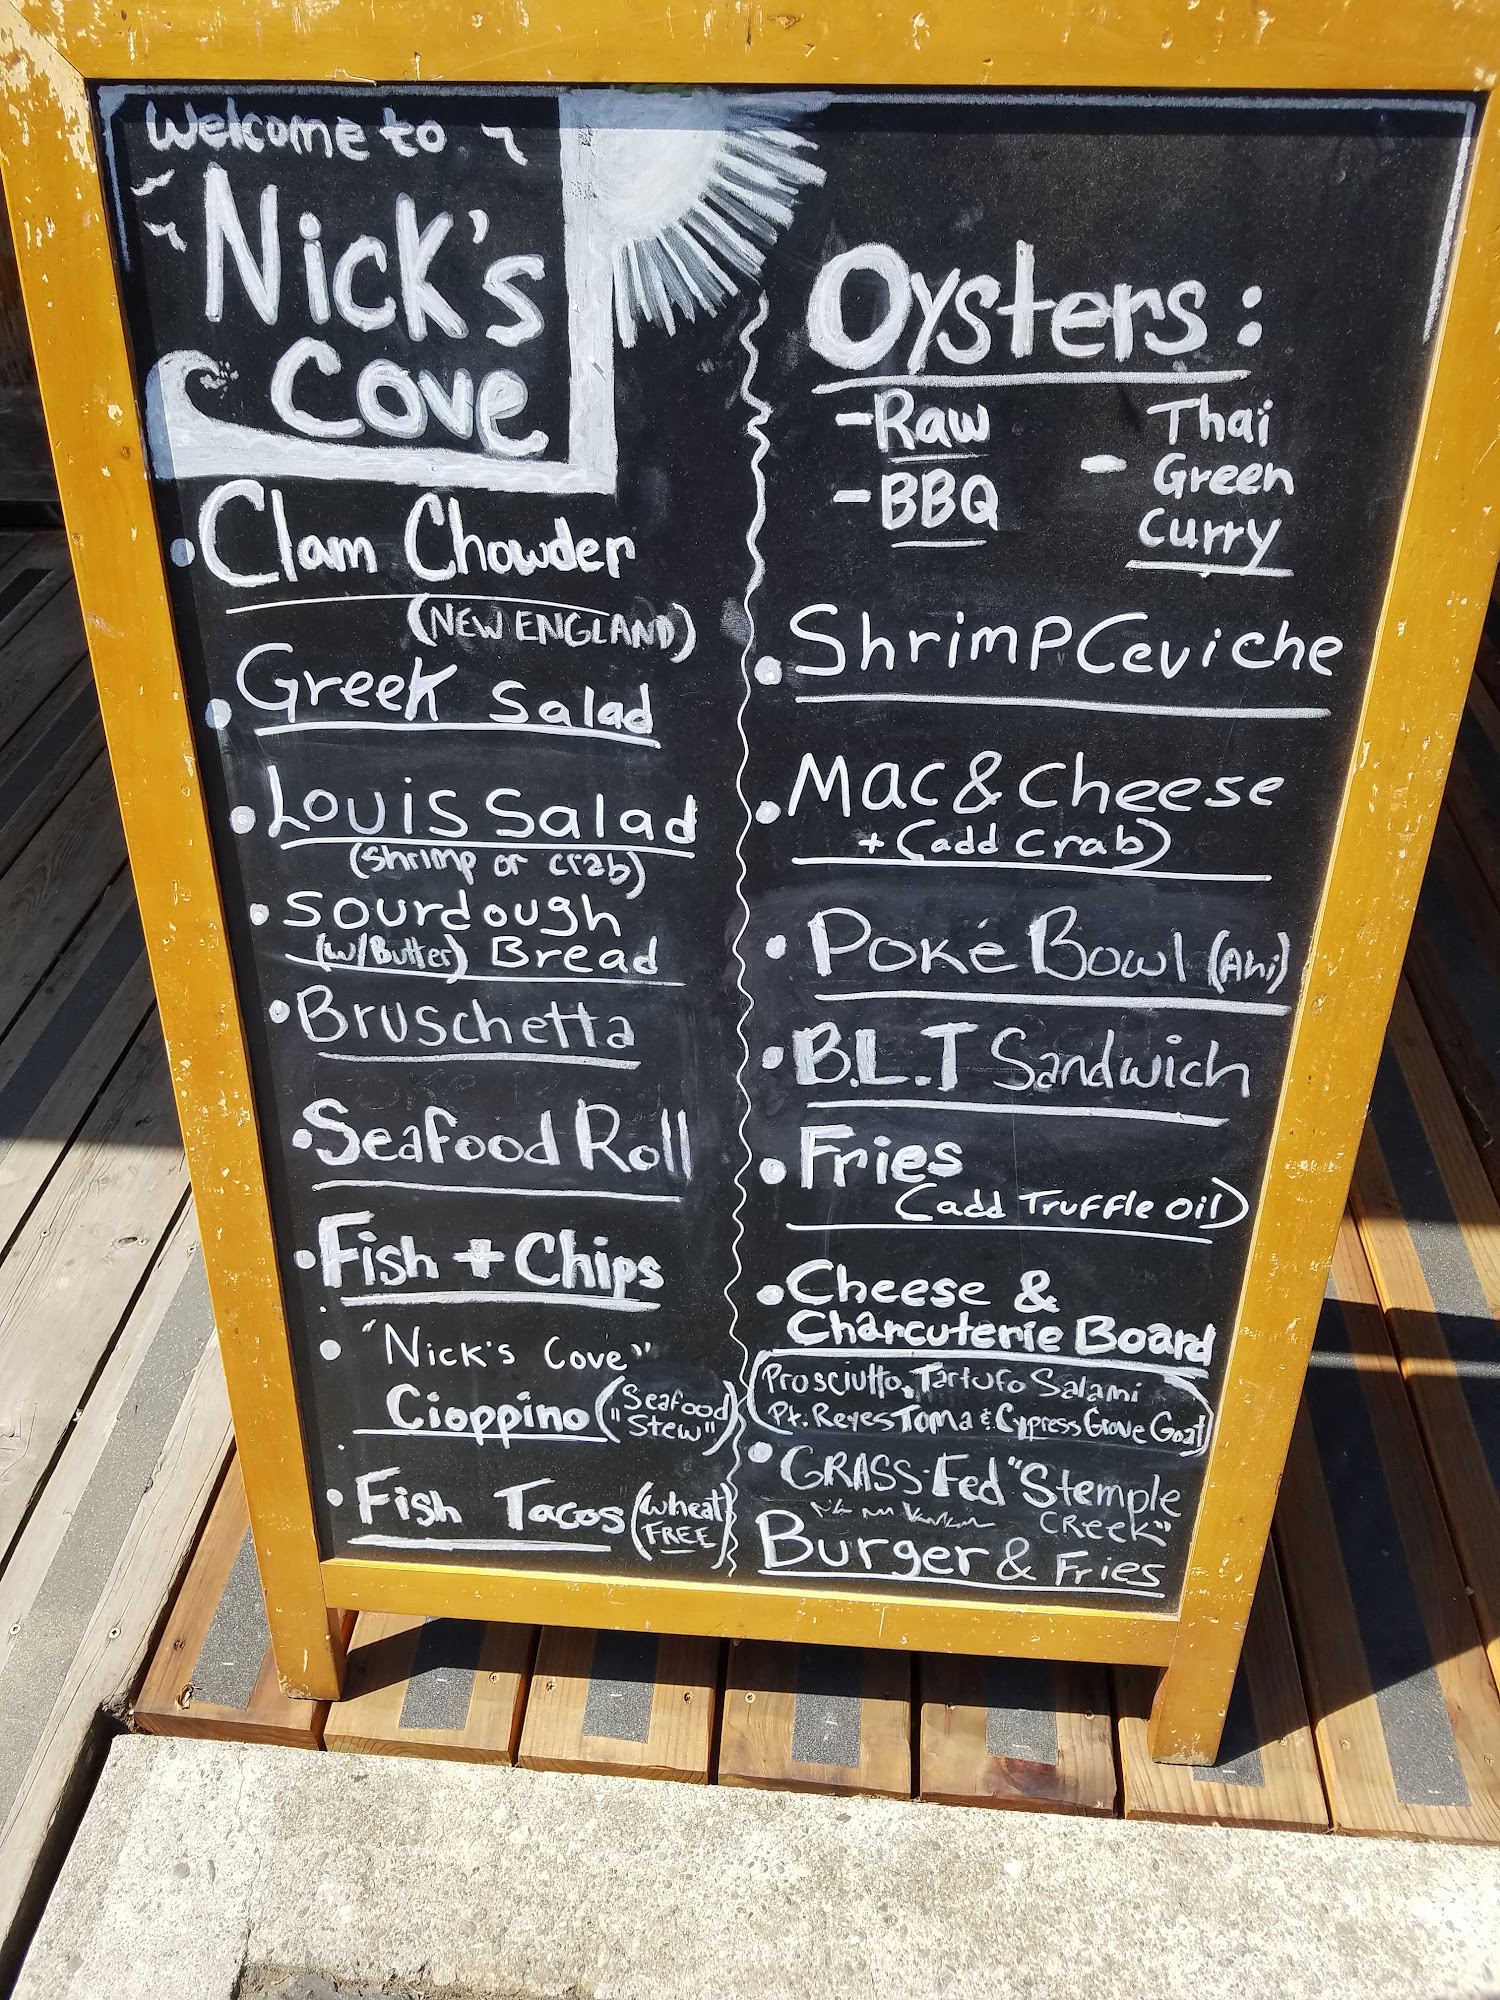 Welcome to
Nick's
Cove
Clam Chowder
(NEW ENGLAND)
Greek Salad
Louis Salad
(Shrimp or Crab)
Sourdough
(w/Butter) Bread
Bruschetta
Seafood Roll
Fish + Chips
"Nick's Cove"
Cioppino (Seafood
"Stew")
Fish Tacos (Wheat
FREE)
Oysters:
- Raw
- BBQ
- Thai
Green
Curry
Shrimp Ceviche
Mac & Cheese
+ (add Crab)
Poké Bowl (Ahi)
B.L.T Sandwich
Fries
(add Truffle Oil)
Cheese &
Charcuterie Board
(Prosciutto, Tartufo Salami
Pt. Reyes Toma & Cypress Grove Goat)
GRASS-Fed "Stemple
CREEK"
Burger & Fries